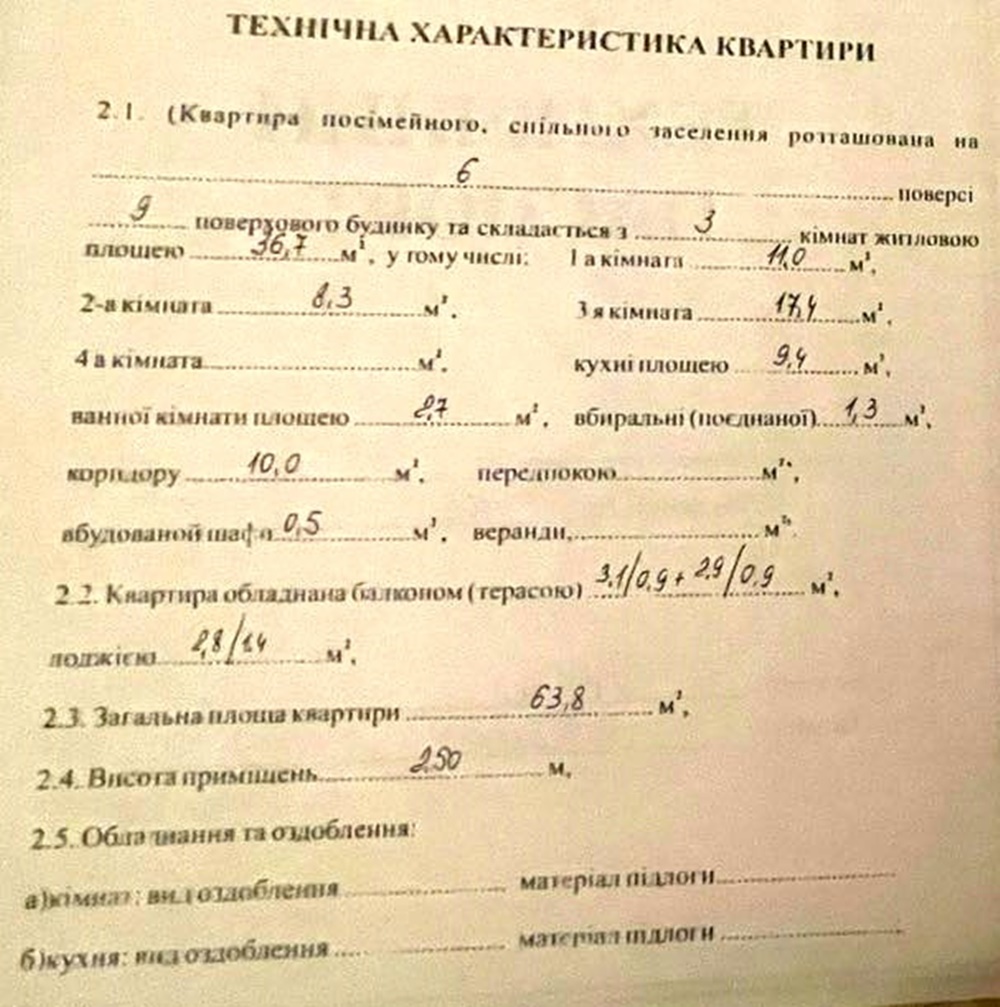 ТЕХНІЧНА ХАРАКТЕРИСТИКА КВАРТИРИ
2.1. (Квартира посімейного, спільного заселення розташована на
6 поверсі
9 поверхового будинку та складається з 3 кімнат житловою
площею 36,7 м², у тому числі: 1 а кімната 11,0 м²,
2-а кімната 8,3 м², 3 я кімната 17,4 м²,
4 а кімната м², кухні площею 9,4 м²,
ванної кімнати площею 2,7 м², вбиральні (поєднаної) 1,3 м²,
коридору 10,0 м², передпокою м²,
вбудованой шафи 0,5 м², веранди, м².
2.2. Квартира обладнана балконом (терасою) 3,1/0,9 + 2,9/0,9 м²,
лоджією 2,8/1,4 м²,
2.3. Загальна площа квартири 63,8 м²,
2.4. Висота приміщень 2,50 м,
2.5. Обладнання та оздоблення:
а)кімнат: вид оздоблення матеріал підлоги
б)кухня: вид оздоблення матеріал підлоги